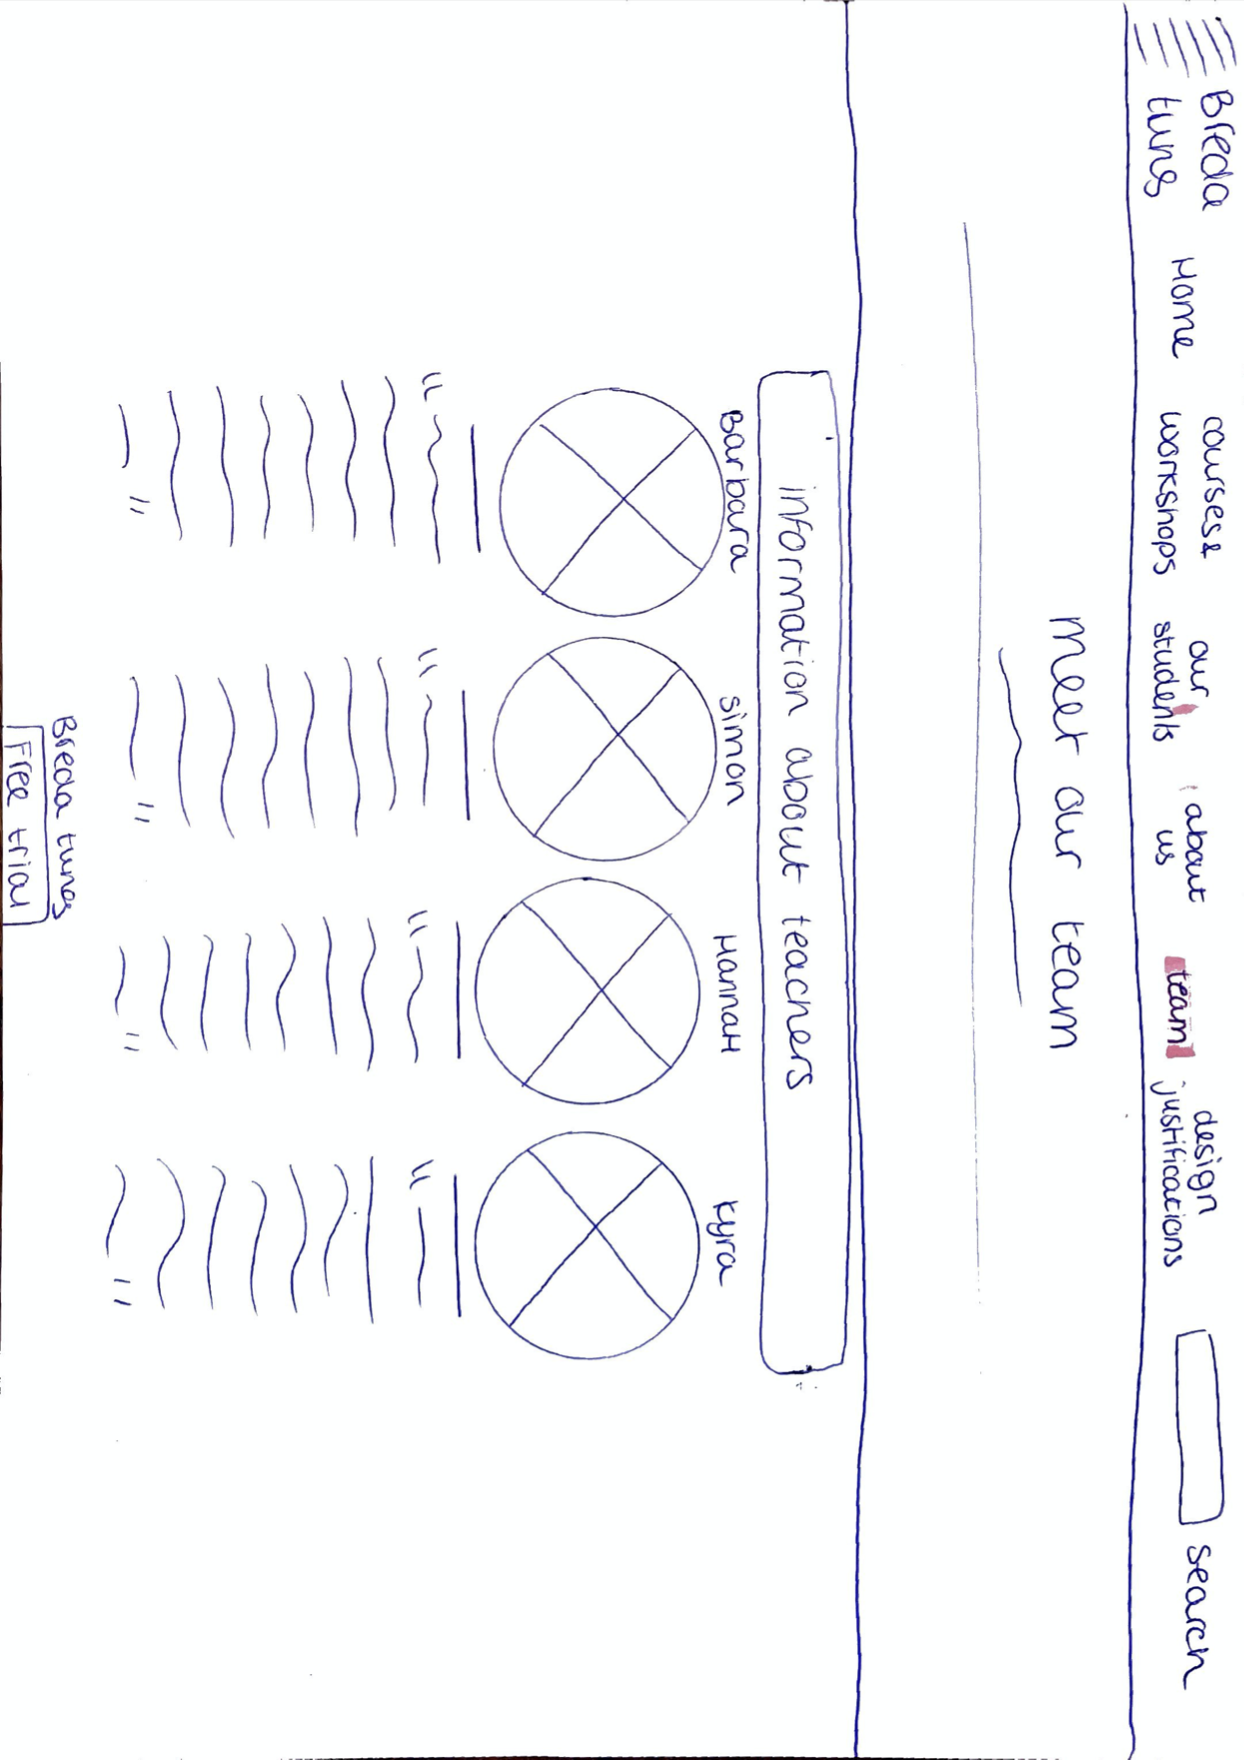 Breda
tunes
Home
courses&
workshops
our
students
about
us
team
design
justifications
search
Meet our team
information about teachers
Barbara
simon
Hannah
kyra
Breda tunes
Free trial